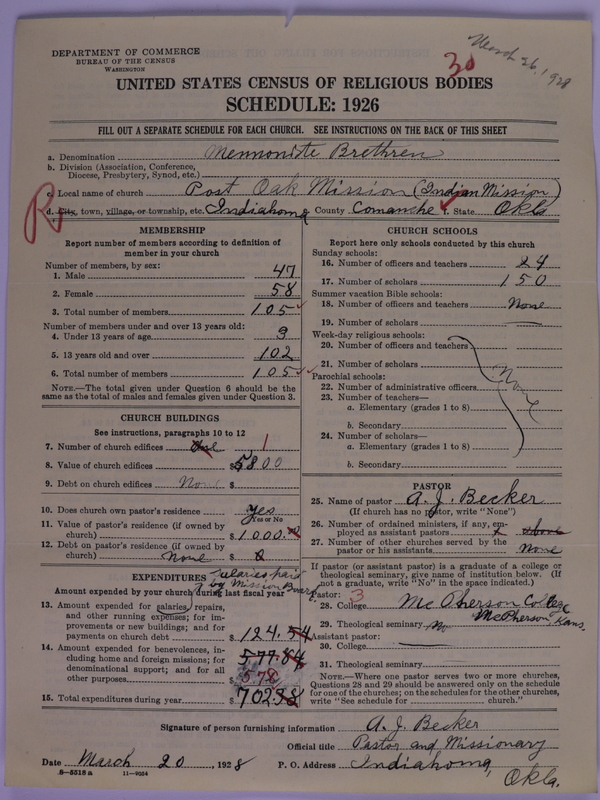 DEPARTMENT OF COMMERCE
BUREAU OF THE CENSUS
WASHINGTON
30
March 26, 1928
UNITED STATES CENSUS OF RELIGIOUS BODIES
SCHEDULE: 1926
FILL OUT A SEPARATE SCHEDULE FOR EACH CHURCH. SEE INSTRUCTIONS ON THE BACK OF THIS SHEET
a. Denomination Mennonite Brethren
b. Division (Association, Conference, Diocese, Presbytery, Synod, etc.)
c. Local name of church Post Oak Mission (Indian Mission)
R
d. City, town, village, or township, etc. Indiahoma County Comanche f. State Okla
MEMBERSHIP
Report number of members according to definition of member in your church
Number of members, by sex:
1. Male 47
2. Female 58
3. Total number of members 105
Number of members under and over 13 years old:
4. Under 13 years of age 3
5. 13 years old and over 102
6. Total number of members 105
NOTE.—The total given under Question 6 should be the same as the total of males and females given under Question 3.
CHURCH BUILDINGS
See instructions, paragraphs 10 to 12
7. Number of church edifices One 1
8. Value of church edifices $5800
9. Debt on church edifices None $
10. Does church own pastor's residence Yes
Yes or No
11. Value of pastor's residence (if owned by church) $1000.
12. Debt on pastor's residence (if owned by church) none $
EXPENDITURES
salaries paid by Mission Board
Amount expended by your church during last fiscal year
13. Amount expended for salaries, repairs, and other running expenses; for improvements or new buildings; and for payments on church debt $124.54
14. Amount expended for benevolences, including home and foreign missions; for denominational support; and for all other purposes 577.84
$578
15. Total expenditures during year $702.38
CHURCH SCHOOLS
Report here only schools conducted by this church
Sunday schools:
16. Number of officers and teachers 24
17. Number of scholars 150
Summer vacation Bible schools:
18. Number of officers and teachers None
19. Number of scholars —
Week-day religious schools:
20. Number of officers and teachers
21. Number of scholars
None
Parochial schools:
22. Number of administrative officers
23. Number of teachers—
a. Elementary (grades 1 to 8)
b. Secondary
24. Number of scholars—
a. Elementary (grades 1 to 8)
b. Secondary
PASTOR
25. Name of pastor A. J. Becker
(If church has no pastor, write "None")
26. Number of ordained ministers, if any, employed as assistant pastors
27. Number of other churches served by the pastor or his assistants None
If pastor (or assistant pastor) is a graduate of a college or theological seminary, give name of institution below. (If not a graduate, write "No" in the space indicated.)
Pastor: 3
28. College McPherson College
McPherson, Kans.
29. Theological seminary No
Assistant pastor:
30. College —
31. Theological seminary
NOTE.—Where one pastor serves two or more churches, Questions 28 and 29 should be answered only on the schedule for one of the churches; on the schedules for the other churches, write "See schedule for church."
Signature of person furnishing information A. J. Becker
Official title Pastor and Missionary
Date March 20, 1928 P. O. Address Indiahoma, Okla.
8—5518 a 11—9034